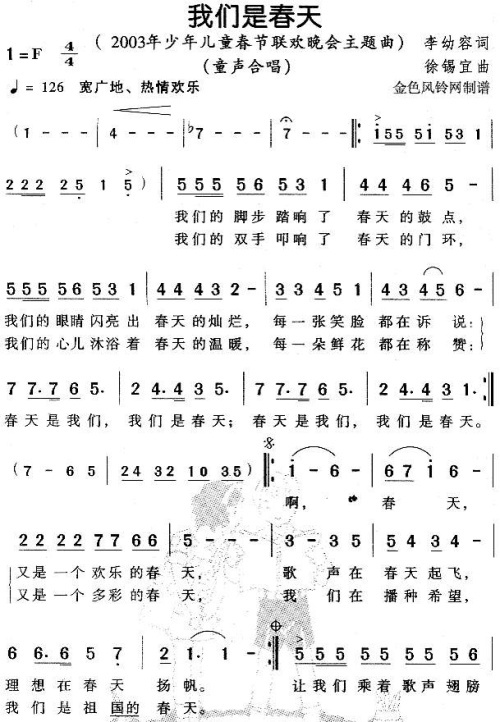 我们是春天
1=F 4/4 （2003年少年儿童春节联欢晚会主题曲） 李幼容词
（童声合唱） 徐锡宜曲
♩= 126 宽广地、热情欢乐 金色风铃网制谱
(1 - - - | 4 - - - | ♭7 - - - | 7 - - - ‖: i55 5i 531 |
222 25 1 5 ) | 555 56 53 1 | 44 46 5 - |
我们的 脚步 踏响 了 春天 的鼓 点，
我们的 双手 叩响 了 春天 的门 环，
555 56 531 | 44 43 2 - | 3 3 34 5 | 43 45 6 - |
我们的 眼睛 闪亮 出 春天 的灿 烂， 每 一 张笑 脸 都在 诉 说：
我们的 心儿 沐浴 着 春天 的温 暖， 每 一 朵鲜 花 都在 称 赞：
7 7. 7 6 5. | 2 4. 4 3 5. | 7 7. 7 6 5. | 2 4. 4 3 1. :‖
春 天 是 我 们， 我 们 是 春 天； 春 天 是 我 们， 我 们 是 春 天。
(7 - 6 5 | 24 32 10 35) ‖: i - 6 - | 6 7 i - |
啊， 春 天，
22 22 77 66 | 2 - - - | 3 - 3 5 | 5 5 4 3 |
又是 一个 欢乐 的春 天， 歌 声 在 春 天 起 飞，
又是 一个 多彩 的春 天， 我 们 在 播 种 希 望，
6 6. 6 5 7 | 2 i. i - :‖ 55 55 55 56 |
理 想 在 春 天 扬 帆。 让我 们乘 着歌 声翅 膀
我 们 是 祖 国的 春 天。